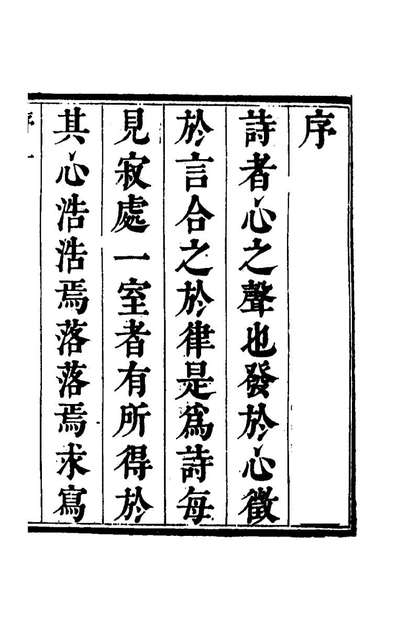 序
詩者心之聲也發於心徵
於言合之於律是爲詩每
見寂處一室者有所得於
其心浩浩焉落落焉求寫
序 一